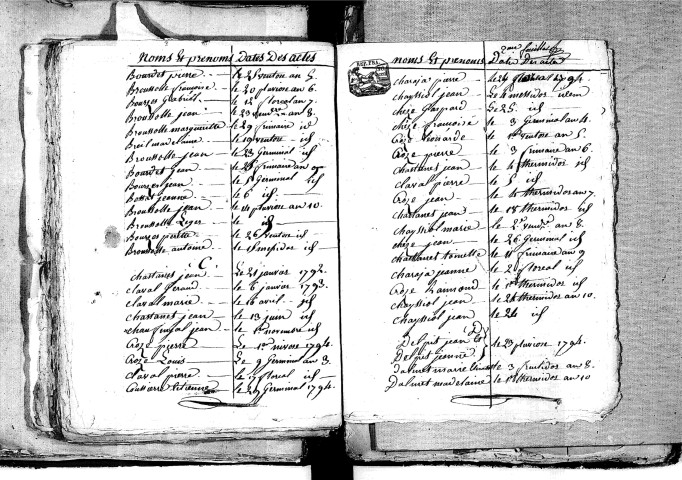 noms Et prenoms Dates Des actes
Bourdet pierre le 25 ventose an 5.
Broussolle françoise le 20 pluviose an 6.
Bourzes Gabriel le 12 floreal an 7.
Broussolle jean le 23 an 8.
Broussolle margueritte le 29 frimaire id
Breil madelaine le 19 ventose id
Broussolle jean le 23 Germinal id
Bourdet jean le 28 frimaire an 9
Bourzes jean le 5 Germinal id
Bosset jeanne le 6 id
Broussolle jean le 14 pluviose an 10.
Broussolle Leger le id
Bourzes pierre le 26 ventose id
Broussolle antoine le 8 messidor id
C
Chastanet jean Le 21 janvier 1792.
Claval Geraud le 6 janvier 1793.
Claval marie le 16 avril id
Chastanet jean le 13 juin id
jean le 1er novembre id
Croze pierre Le 1er nivose 1794.
Croze Louis Le 9 Germinal an 3.
Claval pierre le 17 floreal id
Etienne le 29 Germinal 1794.
noms Et prenoms Date Des actes
Chareja pierre le 24 floreal 1794.
Chayssiol jean Le 4 messidor idem
Cheze Gaspard Le 25 id
Cheze françoise le 3 Germinal an 4.
Croze Leonarde le 1er ventose an 5.
Croze pierre le 3 frimaire an 6.
Chastanet jean le 4 thermidor id
Claval pierre le 5 id
Croze jean le 14 thermidor an 7.
Chastanet jean le 18 thermidor id
Chayssiol marie le 2e an 8.
Cheze jean le 26 Germinal id
Chastanet toinette le 11 frimaire an 9
Chareja jeanne le 2 floreal id
Croze Raimond le 1er thermidor id
Chayssiol jean le 24 thermidor an 10.
Chayssiol jean le 24 id
D
Delpit jean
Delpit jeanne le 23 pluviose 1794.
Dalmet marie le 3 fructidor an 8.
Dalmet madelaine le 12 thermidor an 10